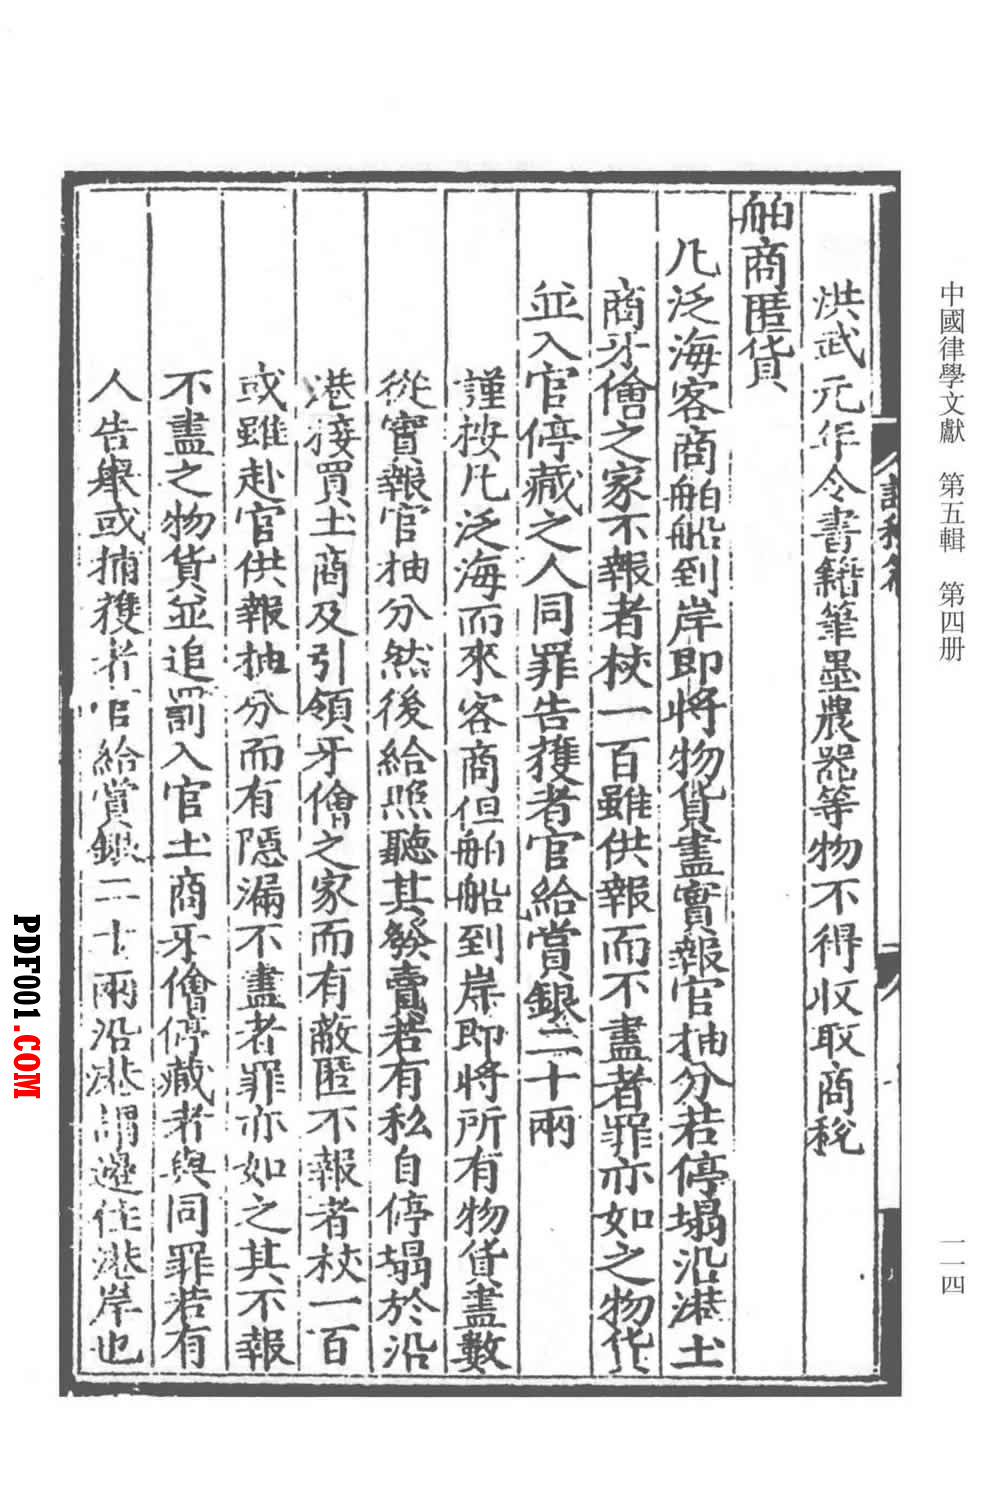 中國律學文獻 第五輯 第四册
一一四
洪武元年令書籍筆墨農器等物不得收取商稅
舶商匿貨
凡泛海客商舶船到岸即將物貨盡實報官抽分若停塌沿港土
商牙儈之家不報者杖一百雖供報而不盡者罪亦如之物貨
並入官停藏之人同罪告獲者官給賞銀二十兩
謹按凡泛海而來客商但舶船到岸即將所有物貨盡數
從實報官抽分然後給照聽其發賣若有私自停塌於沿
港接買土商及引領牙儈之家而有敵匿不報者杖一百
或雖赴官供報抽分而有隱漏不盡者罪亦如之其不報
不盡之物貨並追罰入官土商牙儈停藏者與同罪若有
人告舉或捕獲者官給賞銀二十兩沿港謂邊住港岸也
PDF001.COM